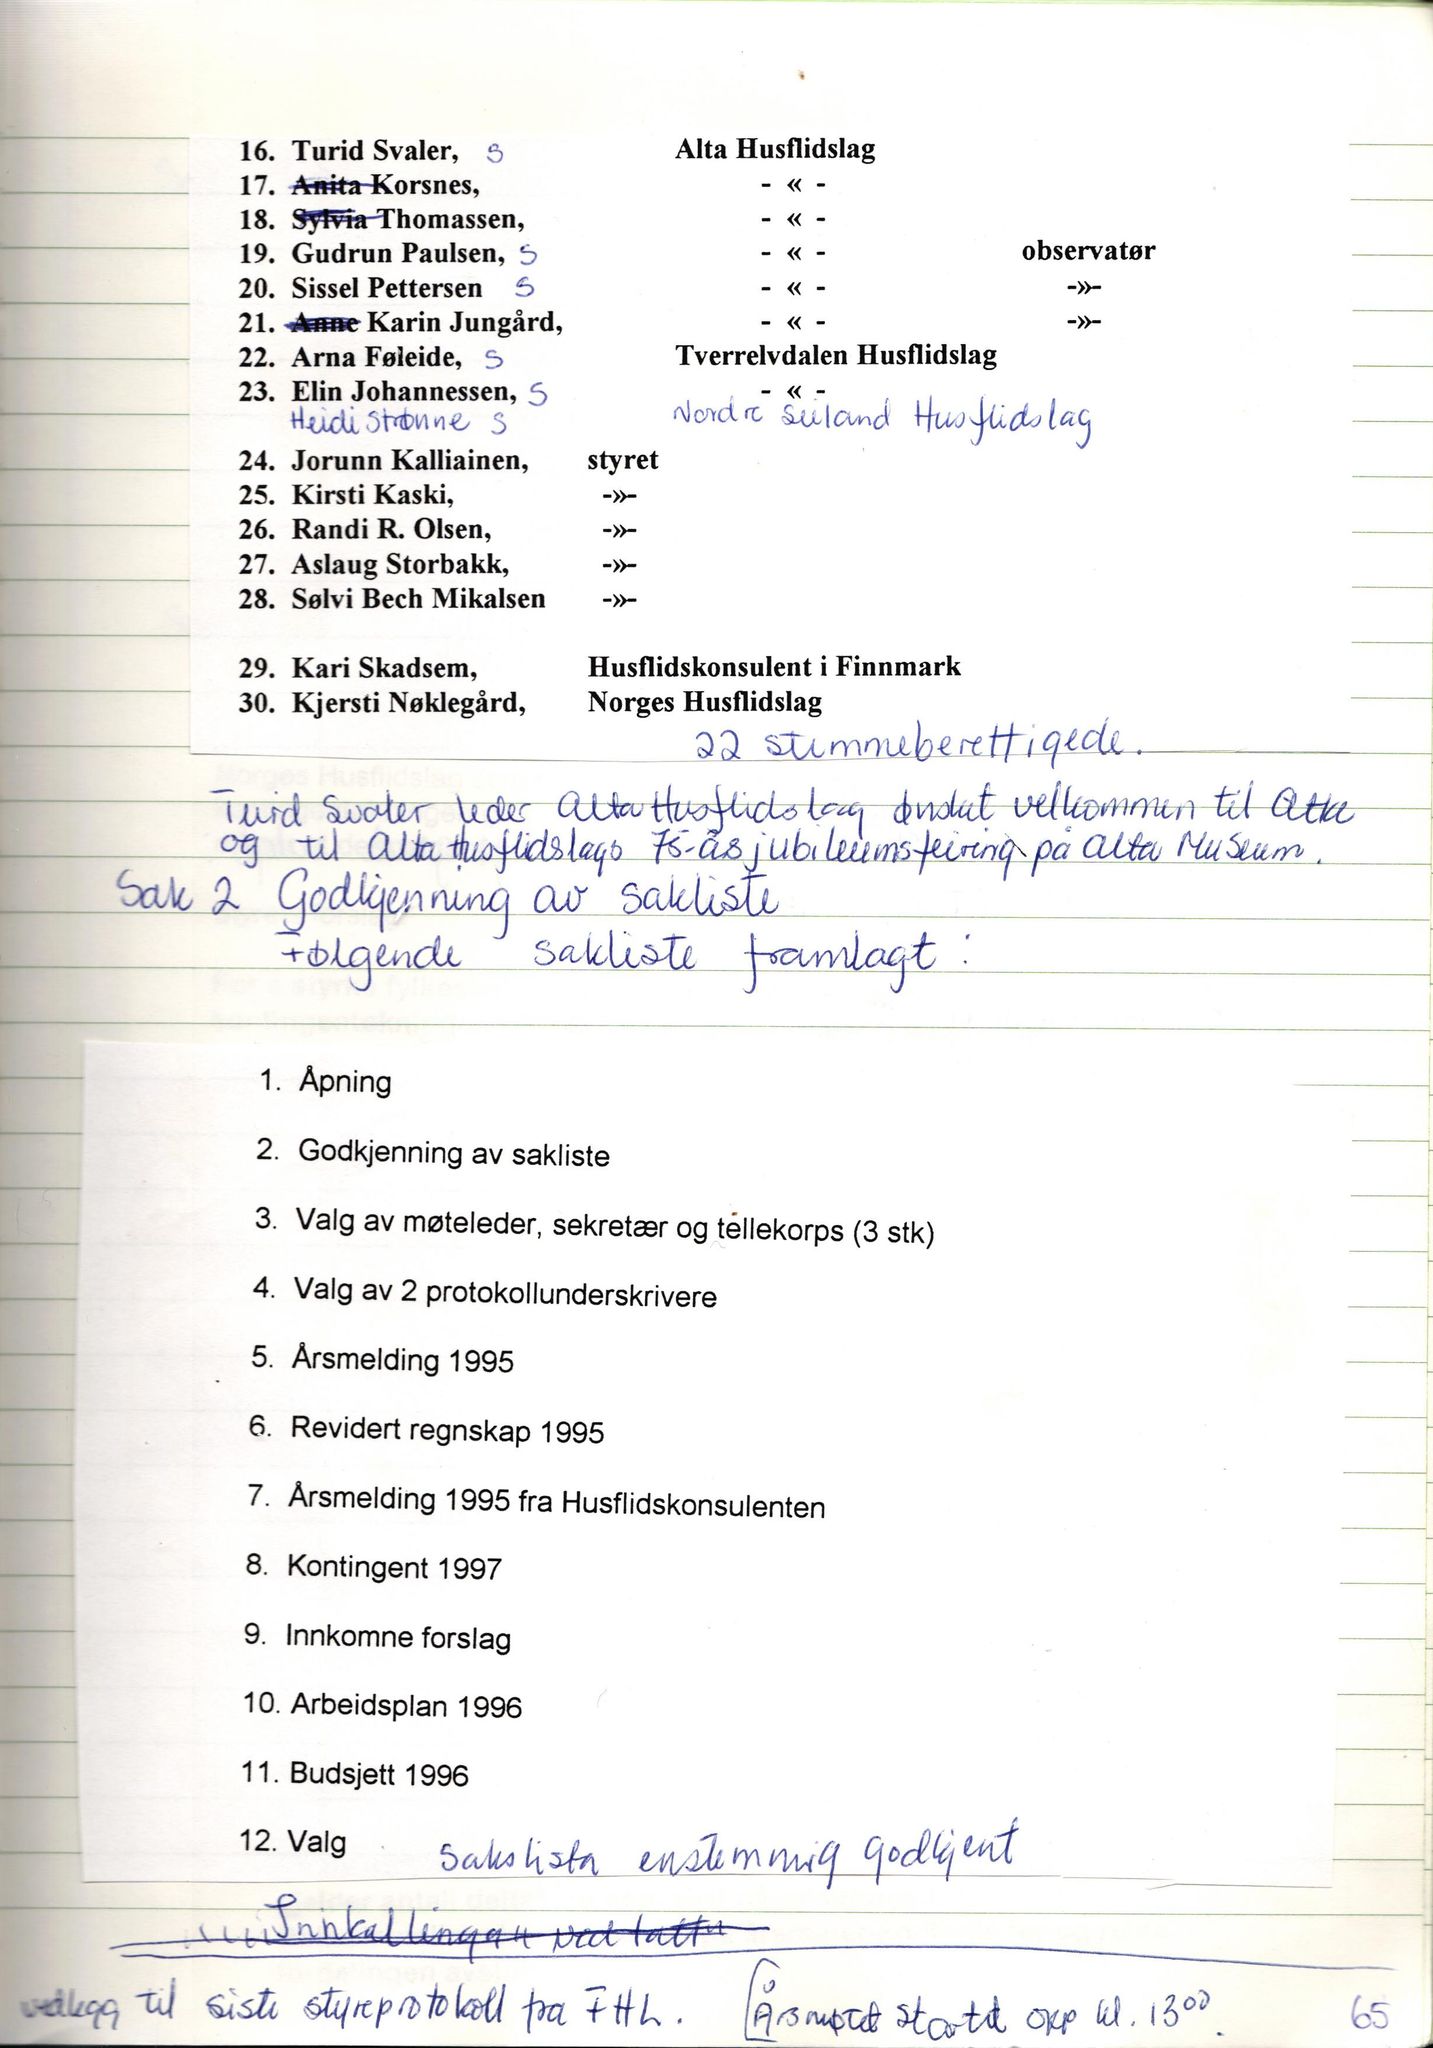 16. Turid Svaler, S Alta Husflidslag
17. Anita Korsnes, - « -
18. Sylvia Thomassen, - « -
19. Gudrun Paulsen, S - « - observatør
20. Sissel Pettersen S - « - -»-
21. Anne Karin Jungård, - « - -»-
22. Arna Føleide, S Tverrelvdalen Husflidslag
23. Elin Johannessen, S - « -
Heidi Strønne S Nordre Seiland Husflidslag
24. Jorunn Kalliainen, styret
25. Kirsti Kaski, -»-
26. Randi R. Olsen, -»-
27. Aslaug Storbakk, -»-
28. Sølvi Bech Mikalsen -»-
29. Kari Skadsem, Husflidskonsulent i Finnmark
30. Kjersti Nøklegård, Norges Husflidslag
22 stemmeberettigede.
Turid Svaler leder Alta Husflidslag ønsket velkommen til Alta
og til Alta Husflidslags 75-års jubileumsfeiring på Alta Museum.
Sak 2 Godkjenning av sakliste
Følgende sakliste framlagt :
1. Åpning
2. Godkjenning av sakliste
3. Valg av møteleder, sekretær og tellekorps (3 stk)
4. Valg av 2 protokollunderskrivere
5. Årsmelding 1995
6. Revidert regnskap 1995
7. Årsmelding 1995 fra Husflidskonsulenten
8. Kontingent 1997
9. Innkomne forslag
10. Arbeidsplan 1996
11. Budsjett 1996
12. Valg Sakslista enstemmig godkjent
Innkallingen vedtatt
vedlegg til siste styreprotokoll fra FHL. Årsmøtet startet opp kl. 13⁰⁰.
65